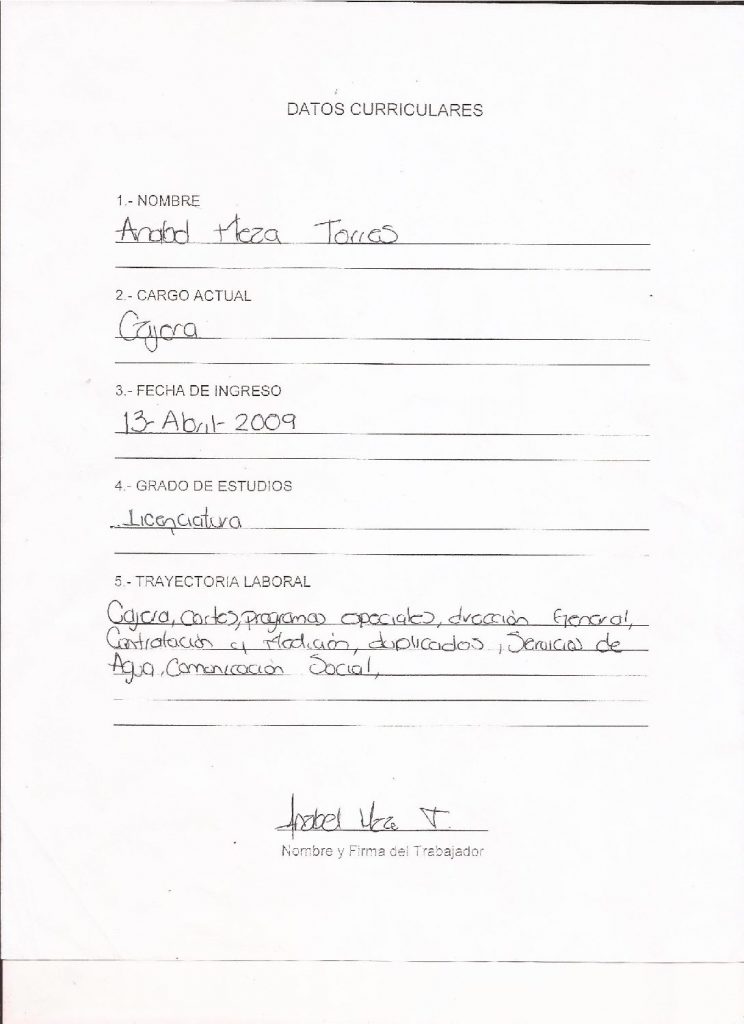 DATOS CURRICULARES
1.- NOMBRE
Anabel Meza Torres
2.- CARGO ACTUAL
Cajera
3.- FECHA DE INGRESO
13-Abril-2009
4.- GRADO DE ESTUDIOS
Licenciatura
5.- TRAYECTORIA LABORAL
Cajera, Cortes, programas especiales, dirección General,
Contratación y Medición, duplicados, Servicios de
Agua, Comunicación Social,
Anabel Meza T.
Nombre y Firma del Trabajador